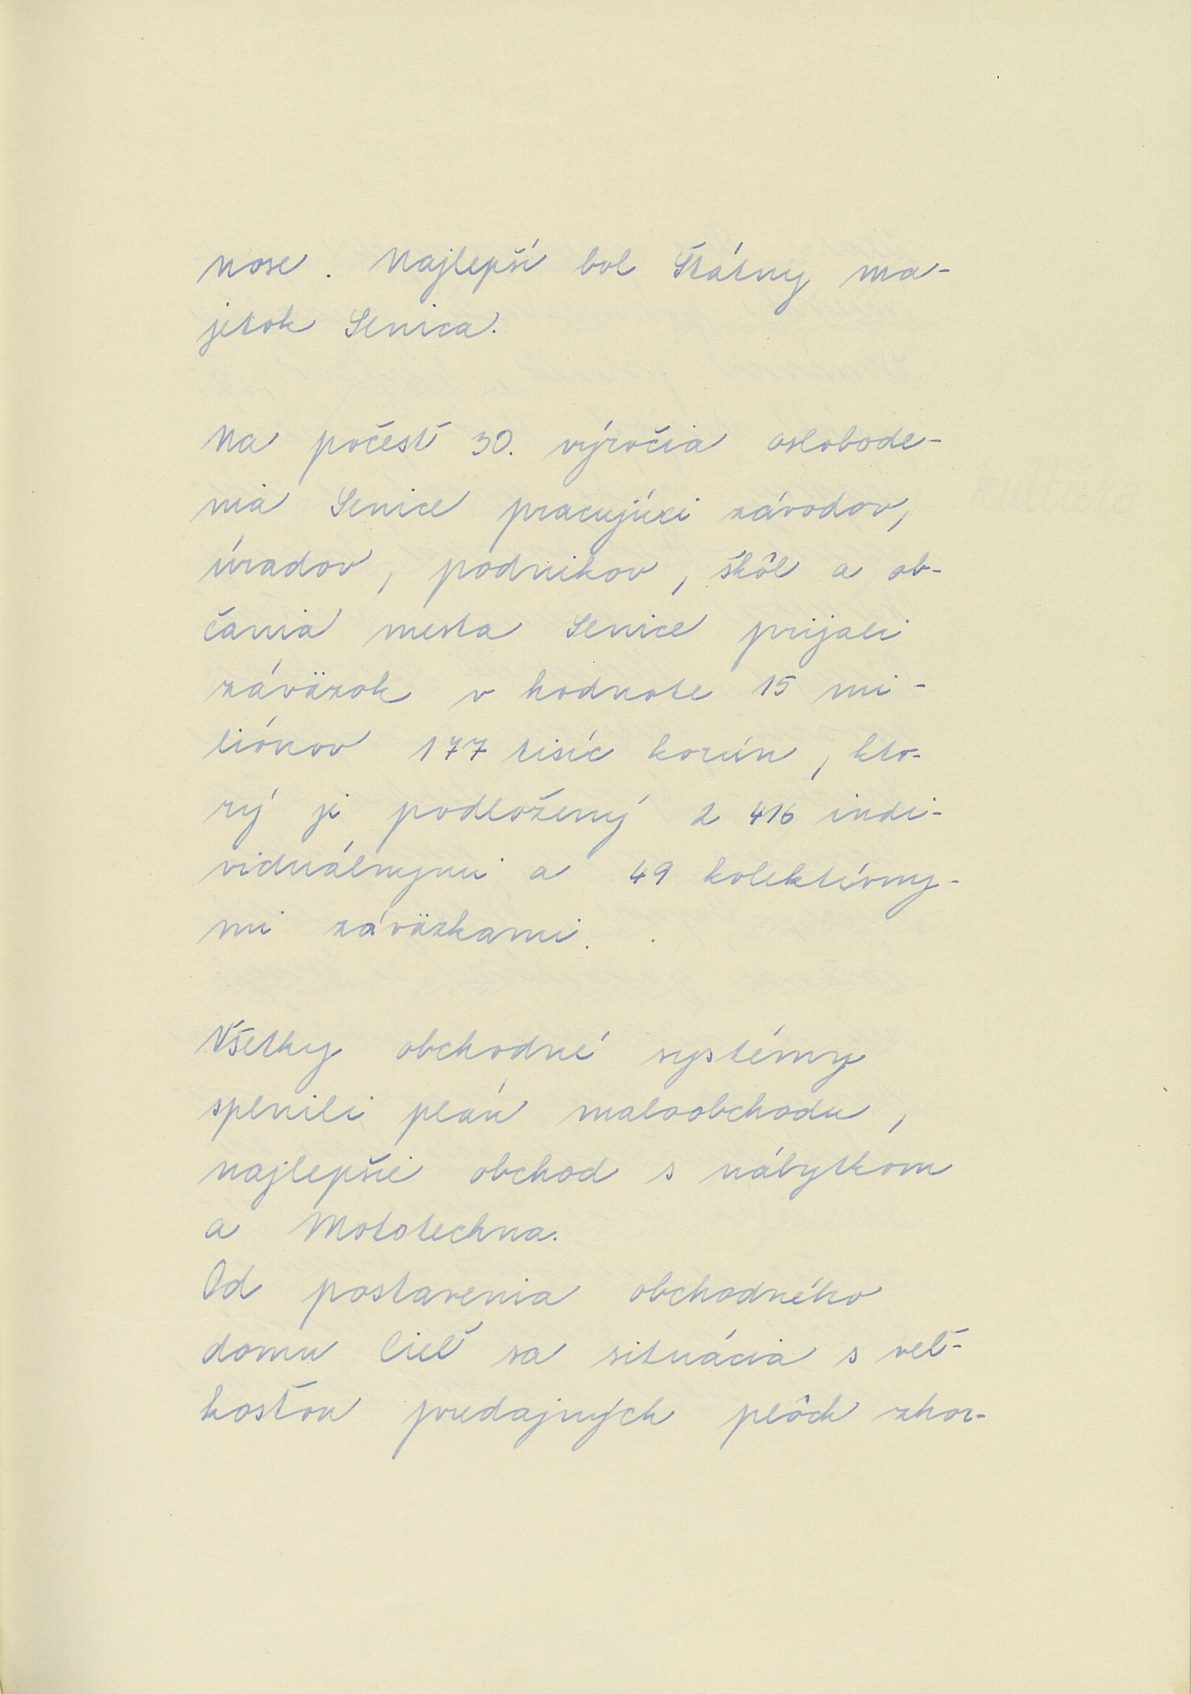 nose. Najlepší bol Štátny ma-
jetok Senica.
Na počesť 30. výročia oslobode-
nia Senice pracujúci závodov,
úradov, podnikov, škôl a ob-
čania mesta Senice prijali
záväzok v hodnote 15 mi-
liónov 177 tisíc korún, kto-
rý je podložený 2 416 indi-
viduálnymi a 49 kolektívny-
mi záväzkami.
Všetky obchodné systémy
splnili plán maloobchodu,
najlepšie obchod s nábytkom
a Mototechna.
Od postavenia obchodného
domu Cieľ sa situácia s veľ-
kosťou predajných plôch zhor-